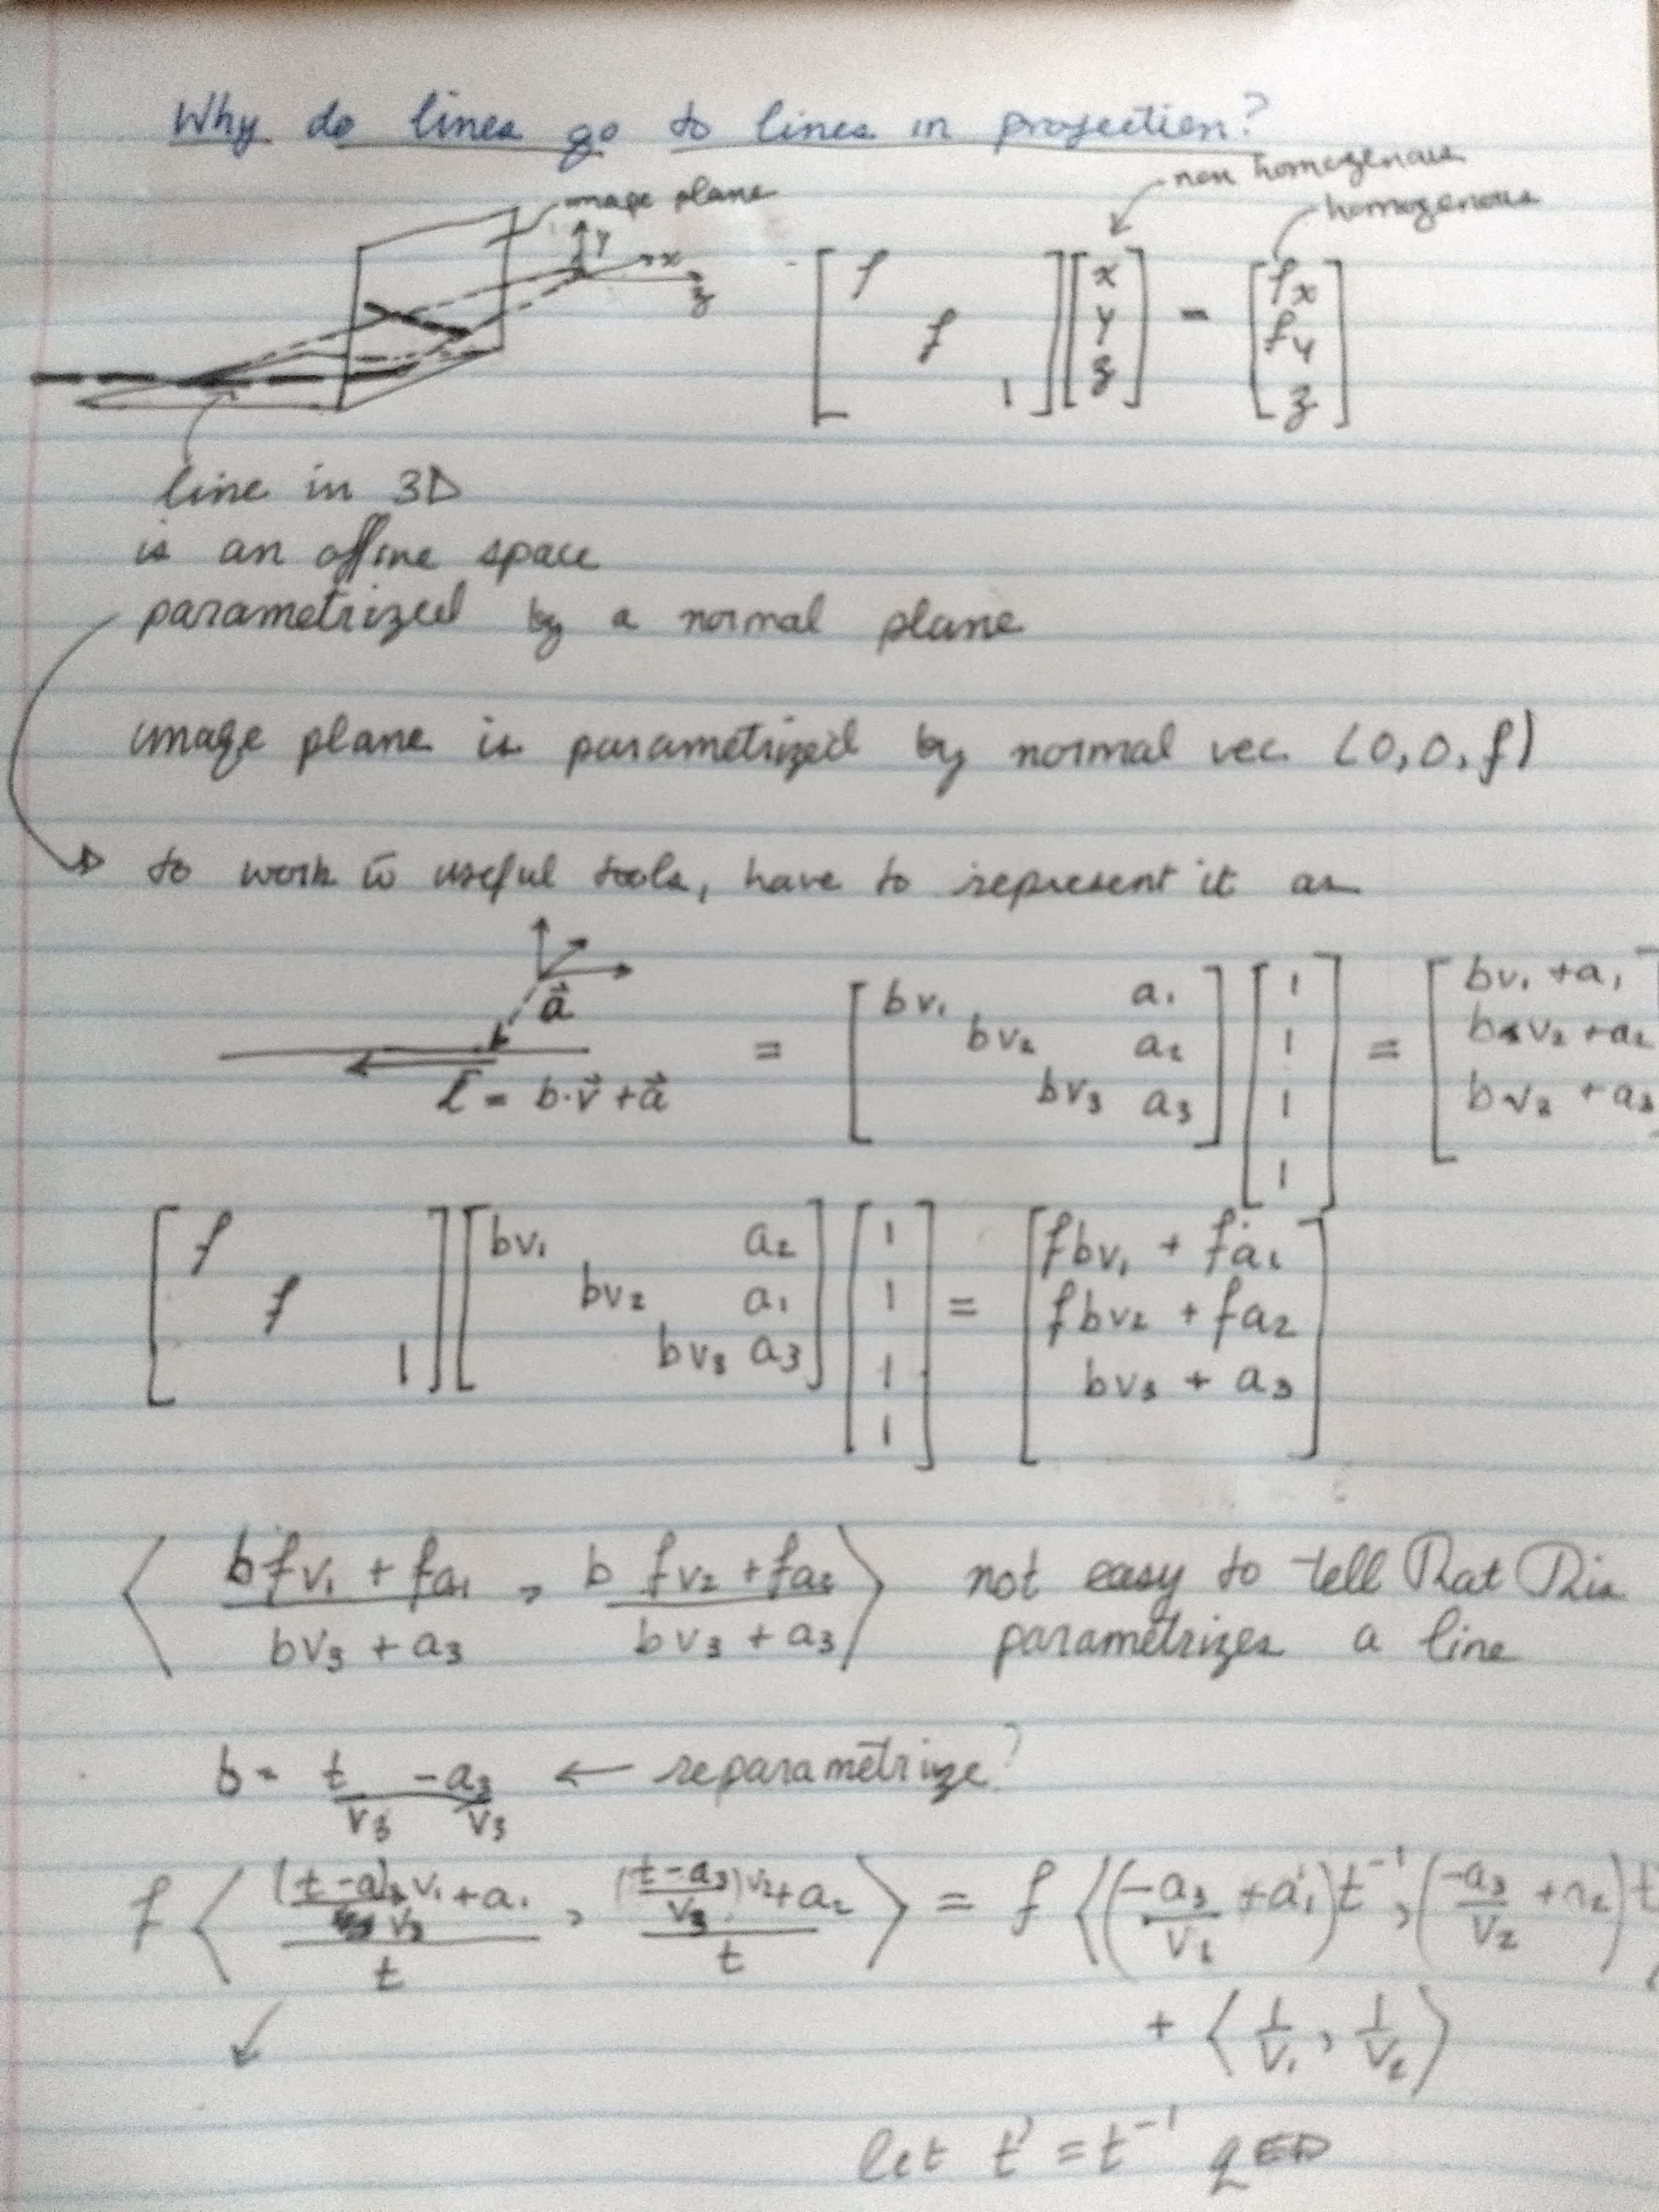 Why do lines go to lines in projection?
non homogenous
homogenous
image plane
y
x
z
[f f 1] [x y z] = [fx fy z]
line in 3D
is an affine space
parametrized by a normal plane
image plane is parametrized by normal vec (0,0,f)
to work w̄ useful tools, have to represent it as
a⃗
l = b·v⃗ + a⃗
= [bv₁ a₁ bv₂ a₂ bv₃ a₃] [1 1 1 1] = [bv₁ + a₁ bv₂ + a₂ bv₂ + a₃
[f f 1] [bv₁ a₂ bv₂ a₁ bv₃ a₃] [1 1 1 1] = [fbv₁ + fa₁ fbv₂ + fa₂ bv₃ + a₃]
⟨ (bfv₁ + fa₁)/(bv₃ + a₃) , (b fv₂ + fa₂)/(bv₃ + a₃) ⟩ not easy to tell that this
parametrizes a line
b = t/v₃ - a₃/v₃ ← reparametrize?
f ⟨ ((t-a₃)/v₃ v₁ + a₁)/t , ((t-a₃)/v₃ v₂ + a₂)/t ⟩ = f ⟨ (-a₃/v₁ + a₁) t⁻¹ , (-a₃/v₂ + a₂) t
+ ⟨ 1/v₁ , 1/v₂ ⟩
let t' = t⁻¹ QED